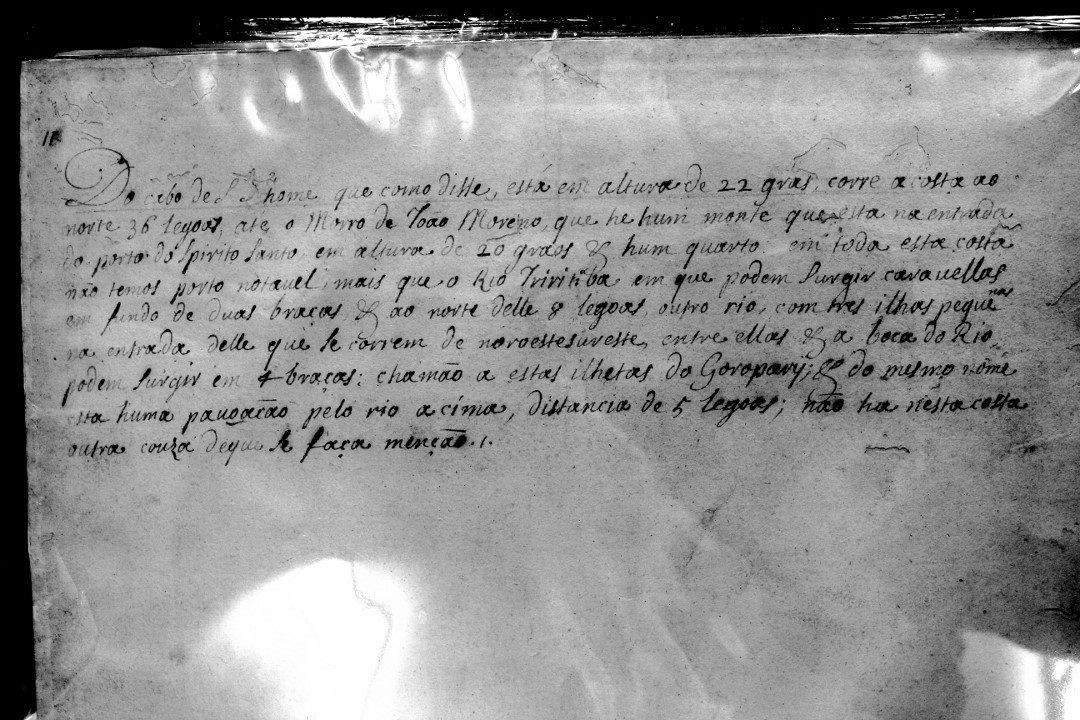 11
Do cabo de S. Thome que como disse, está em altura de 22 graos, corre a costa ao
norte 36 legoas, até o Morro de Joao Moreno, que he hum monte que esta na entrada
do porto do Spirito Santo, em altura de 20 graos & hum quarto em toda esta costa
não temos porto notavel, mais que o Rio Tiritiba em que podem surgir caravellas
em fundo de duas braças & ao norte delle 8 legoas, outro rio, com tres ilhas pequenas
na entrada delle que se correm de noroestesueste, entre ellas & a boca do Rio
podem surgir em 4 braças: chamão a estas ilhetas do Goropary; & do mesmo nome
esta huma pavoacão pelo rio acíma, distancia de 5 legoas; não ha nesta costa
outra couza deque se faça menção.